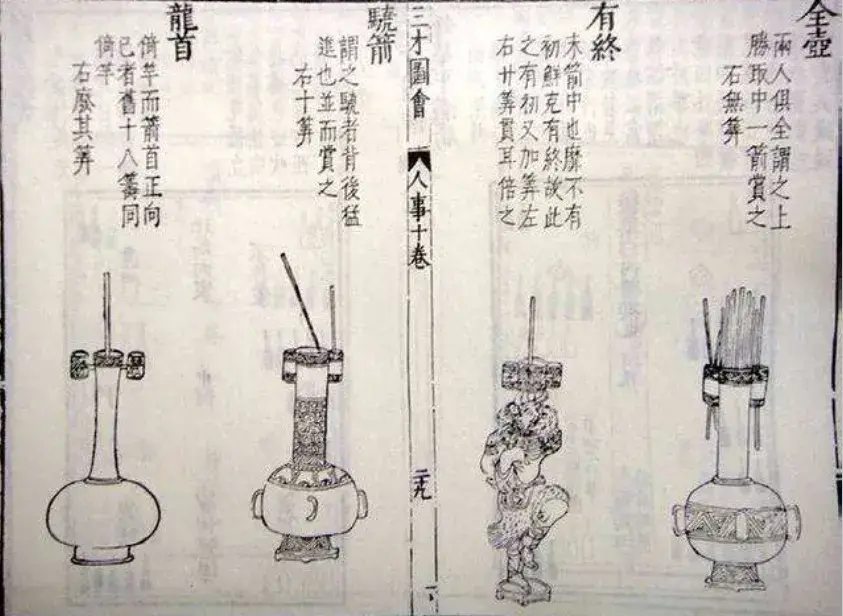 全壺
兩人俱全謂之上
勝取中一箭賞之
右無筭
有終
末箭中也靡不有
初鮮克有終故此
之有初又加筭左
右廿筭貫耳倍之
三才圖會 人事十卷
驍箭
謂之驍者背後猛
進也並而賞之
右十筭
龍首
倚竿而箭首正向
己者舊十八籌同
倚竿
右廢其筭